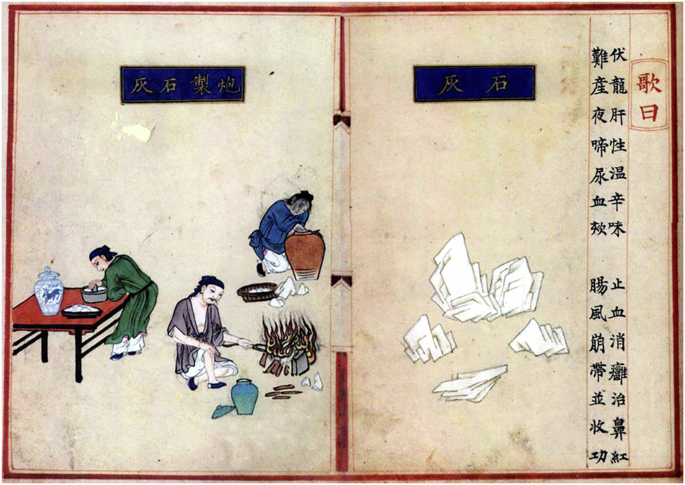 歌曰
伏龍肝性温辛味 止血消癰治鼻紅
難産夜啼尿血欬 腸風崩帶並收功
石灰
炮製石灰